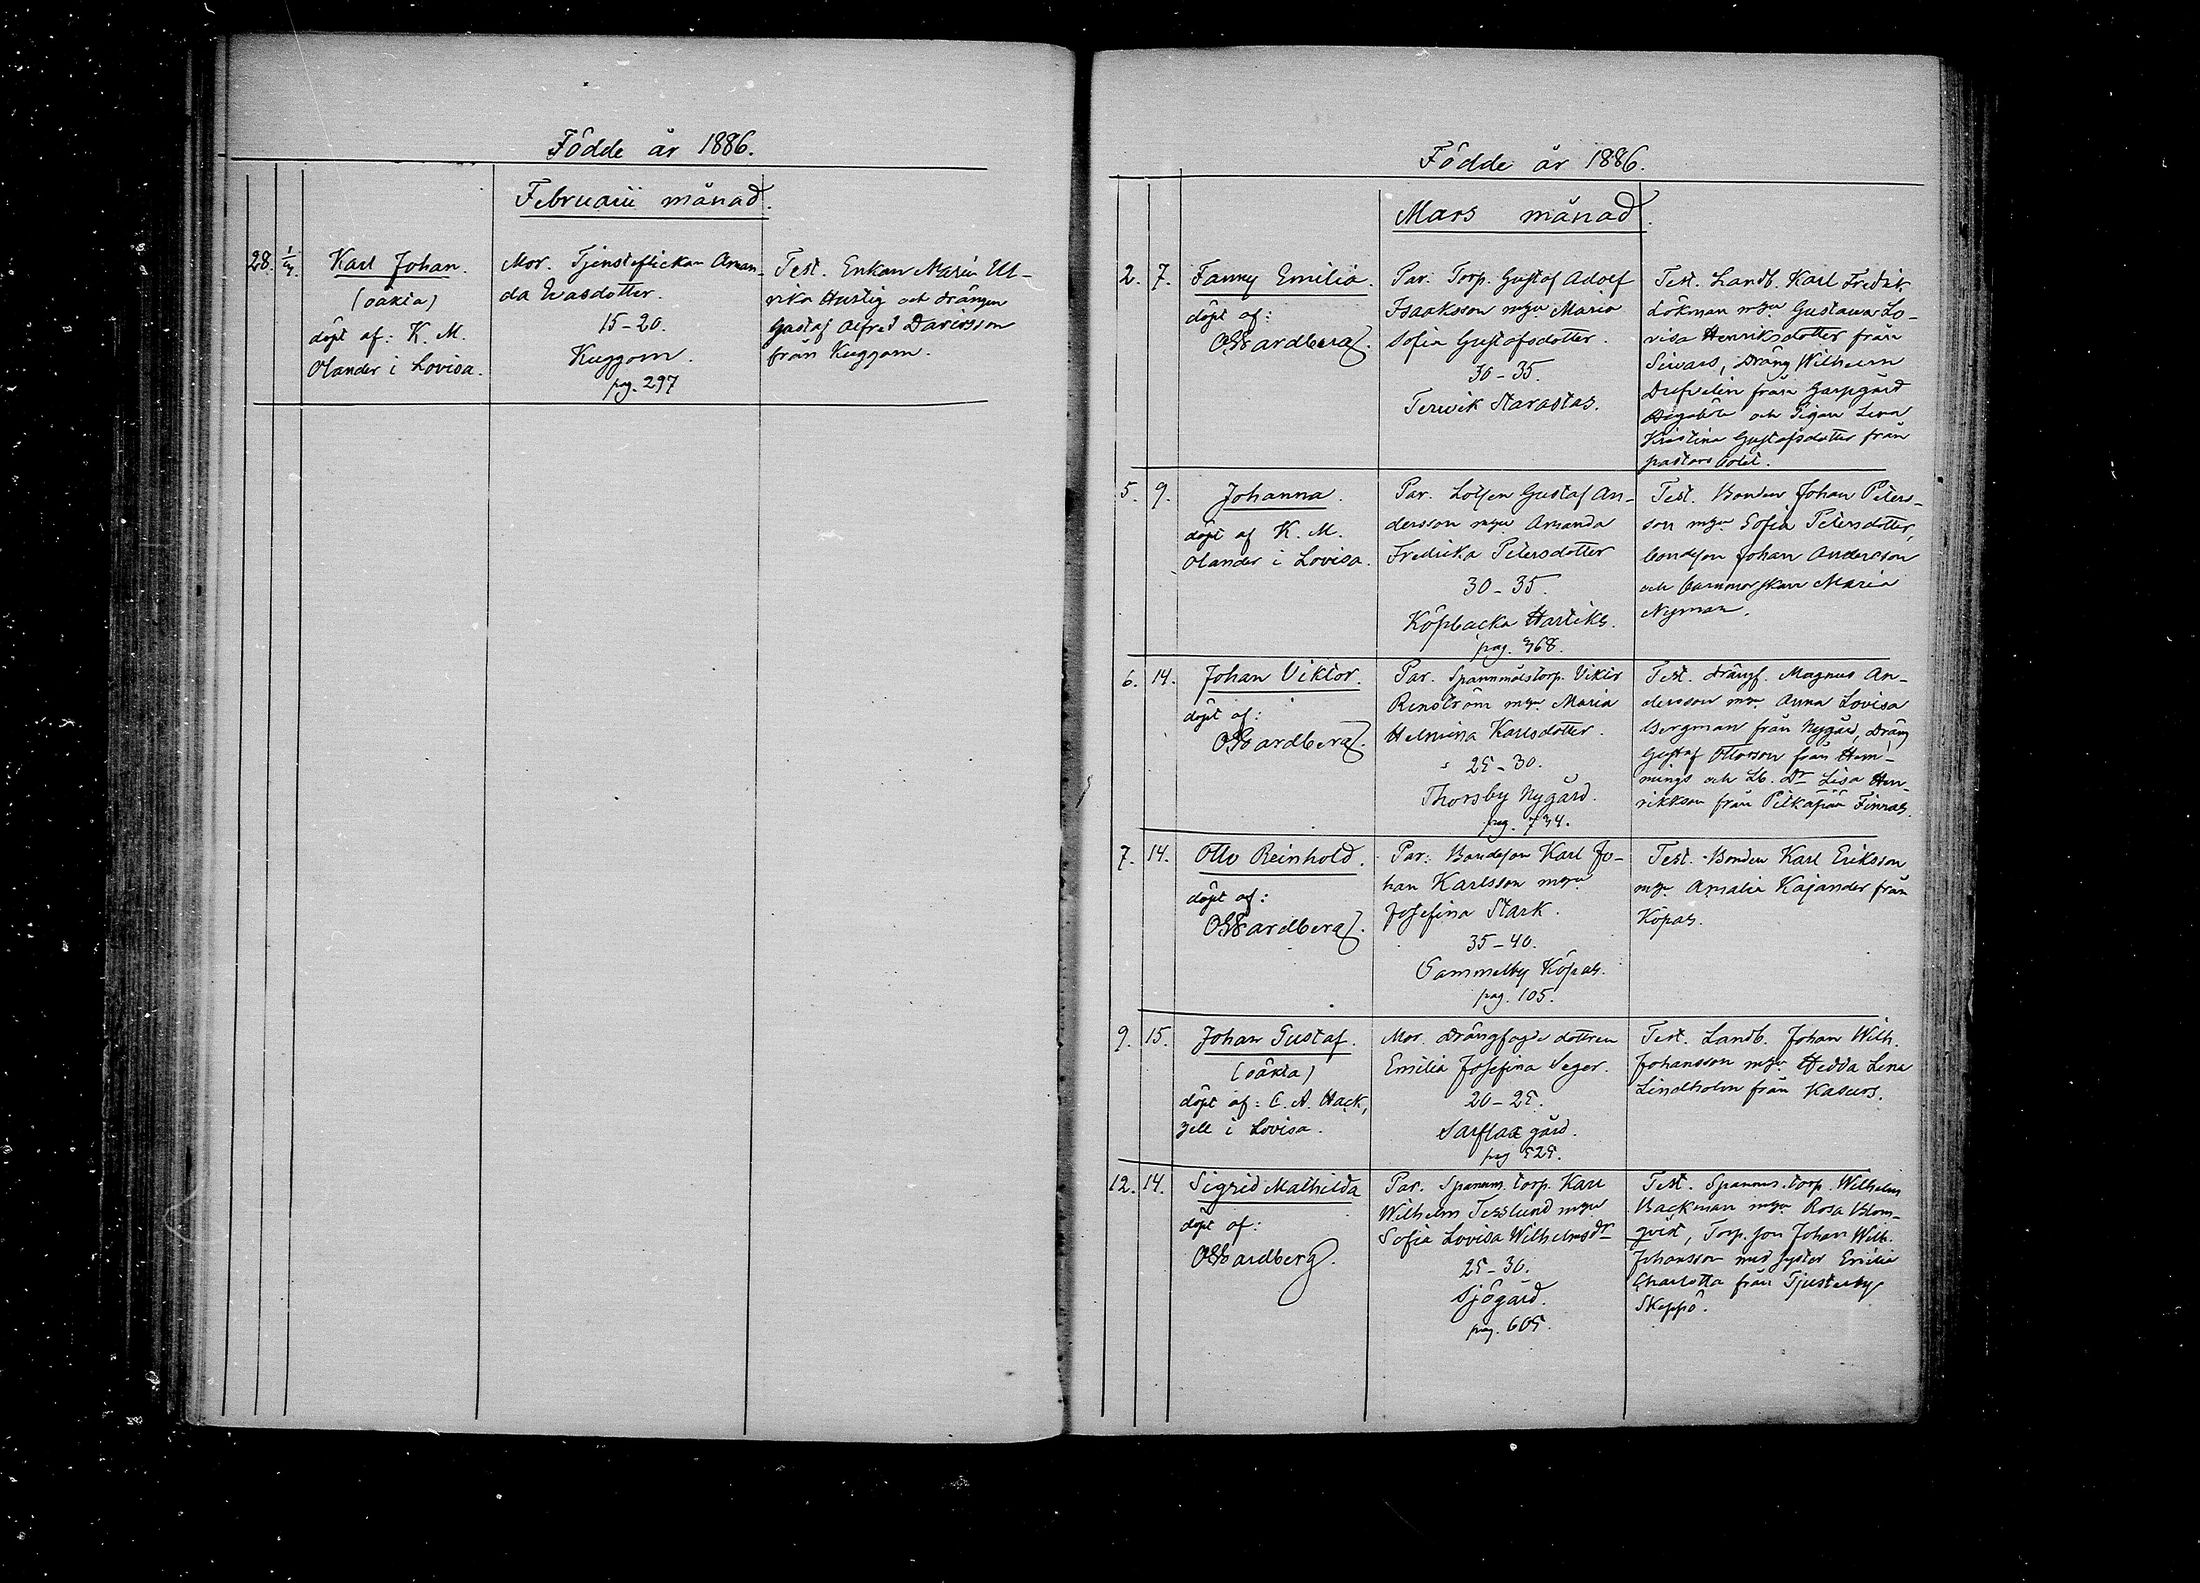 Födde år 1886.
Februarii månad.
28. 1/3. Karl Johan.
(oäkta)
döpt af: K. M.
Olander i Lovisa.
Mor. Tjensteflickan Aman-
da Evasdotter.
15-20.
Kuggom.
pag. 297
Test. Enkan Maria Ul-
rika Hurtig och drängen
Gustaf Alfred Davidsson
från Kuggom.
Födde år 1886.
Mars månad.
2. 7. Fanny Emilia.
döpt af:
OWardberg.
Par. Torp. Gustaf Adolf
Isaaksson m hu Maria
Sofia Gustafsdotter.
30-35.
Tervik Starastas.
Test. Landb. Karl Fredrik
Lökman m hu Gustava Lo-
visa Henriksdotter från
Sivars, Dräng Wilhelm
från Garpgård
och Pigan Lena
Kristina Gustafsdotter från
pastors bolet.
5. 9. Johanna.
döpt af K. M.
Olander i Lovisa.
Par. Lotsen Gustaf An-
dersson m hu Amanda
Fredrika Petersdotter
30-35.
Köpbacka Hartiks.
pag. 368.
Test. Bonden Johan Peters-
son m hu Sofia Petersdotter,
bondson Johan Andersson
och barnmorskan Maria
Nyman.
6. 14. Johan Viktor.
döpt af:
OWardberg.
Par. Spannmålstorp. Viktor
Renström m hu Maria
Helmina Karlsdotter.
25-30.
Thorsby Nygård.
pag. 734.
Test. drängf. Magnus An-
dersson m hu Anna Lovisa
Bergman från Nygård, Dräng
Gustaf Ottosson från Hem-
mings och Lb. Dr Lisa Hen-
rikkson från Pitkäpää Finnas.
7. 14. Otto Reinhold.
döpt af:
OWardberg.
Par. Bondeson Karl Jo-
han Karlsson m hu
Josefina Stark.
35-40.
Gammelby Köpas.
pag. 105.
Test. Bonden Karl Eriksson
m hu Amalia Kajander från
Köpas.
9. 15. Johan Gustaf.
(oäkta)
döpt af: C. A. Hack,
zell i Lovisa.
Mor. Drängfogde dottren
Emilia Josefina Seger.
20-25.
Sarflax gård.
pag 525.
Test. Landb. Johan Wilh.
Johansson m hu Hedda Lena
Lindholm från Kasurs.
12. 14. Sigrid Mathilda
döpt af:
OWardberg.
Par. Spannm. torp. Karl
Wilhelm Tesslund m hu
Sofia Lovisa Wilhelmsdr
25-30.
Sjögård.
pag. 605.
Test. Spannm. torp. Wilhelm
Backman m hu Rosa Blom-
qvist, Torp. son Johan Wilh.
Johansson med syster Emilia
Charlotta från Tjusterby
Skeppö.